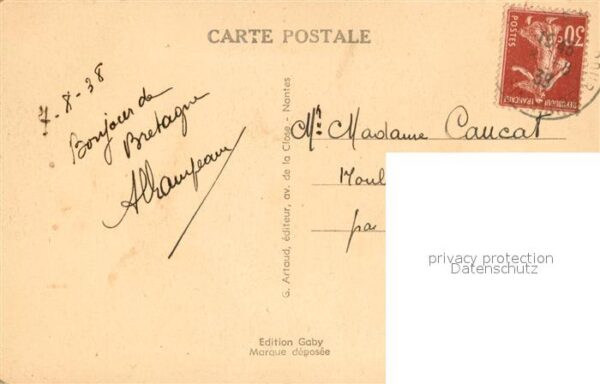 CARTE POSTALE
7-8-38
Bonjour de
Bretagne
G. Artaud, éditeur, av. de la Close - Nantes
Édition Gaby
Marque déposée
30c
POSTES
RÉPUBLIQUE FRANÇAISE
Mr Madame Caucat
Moul
par
privacy protection
Datenschutz